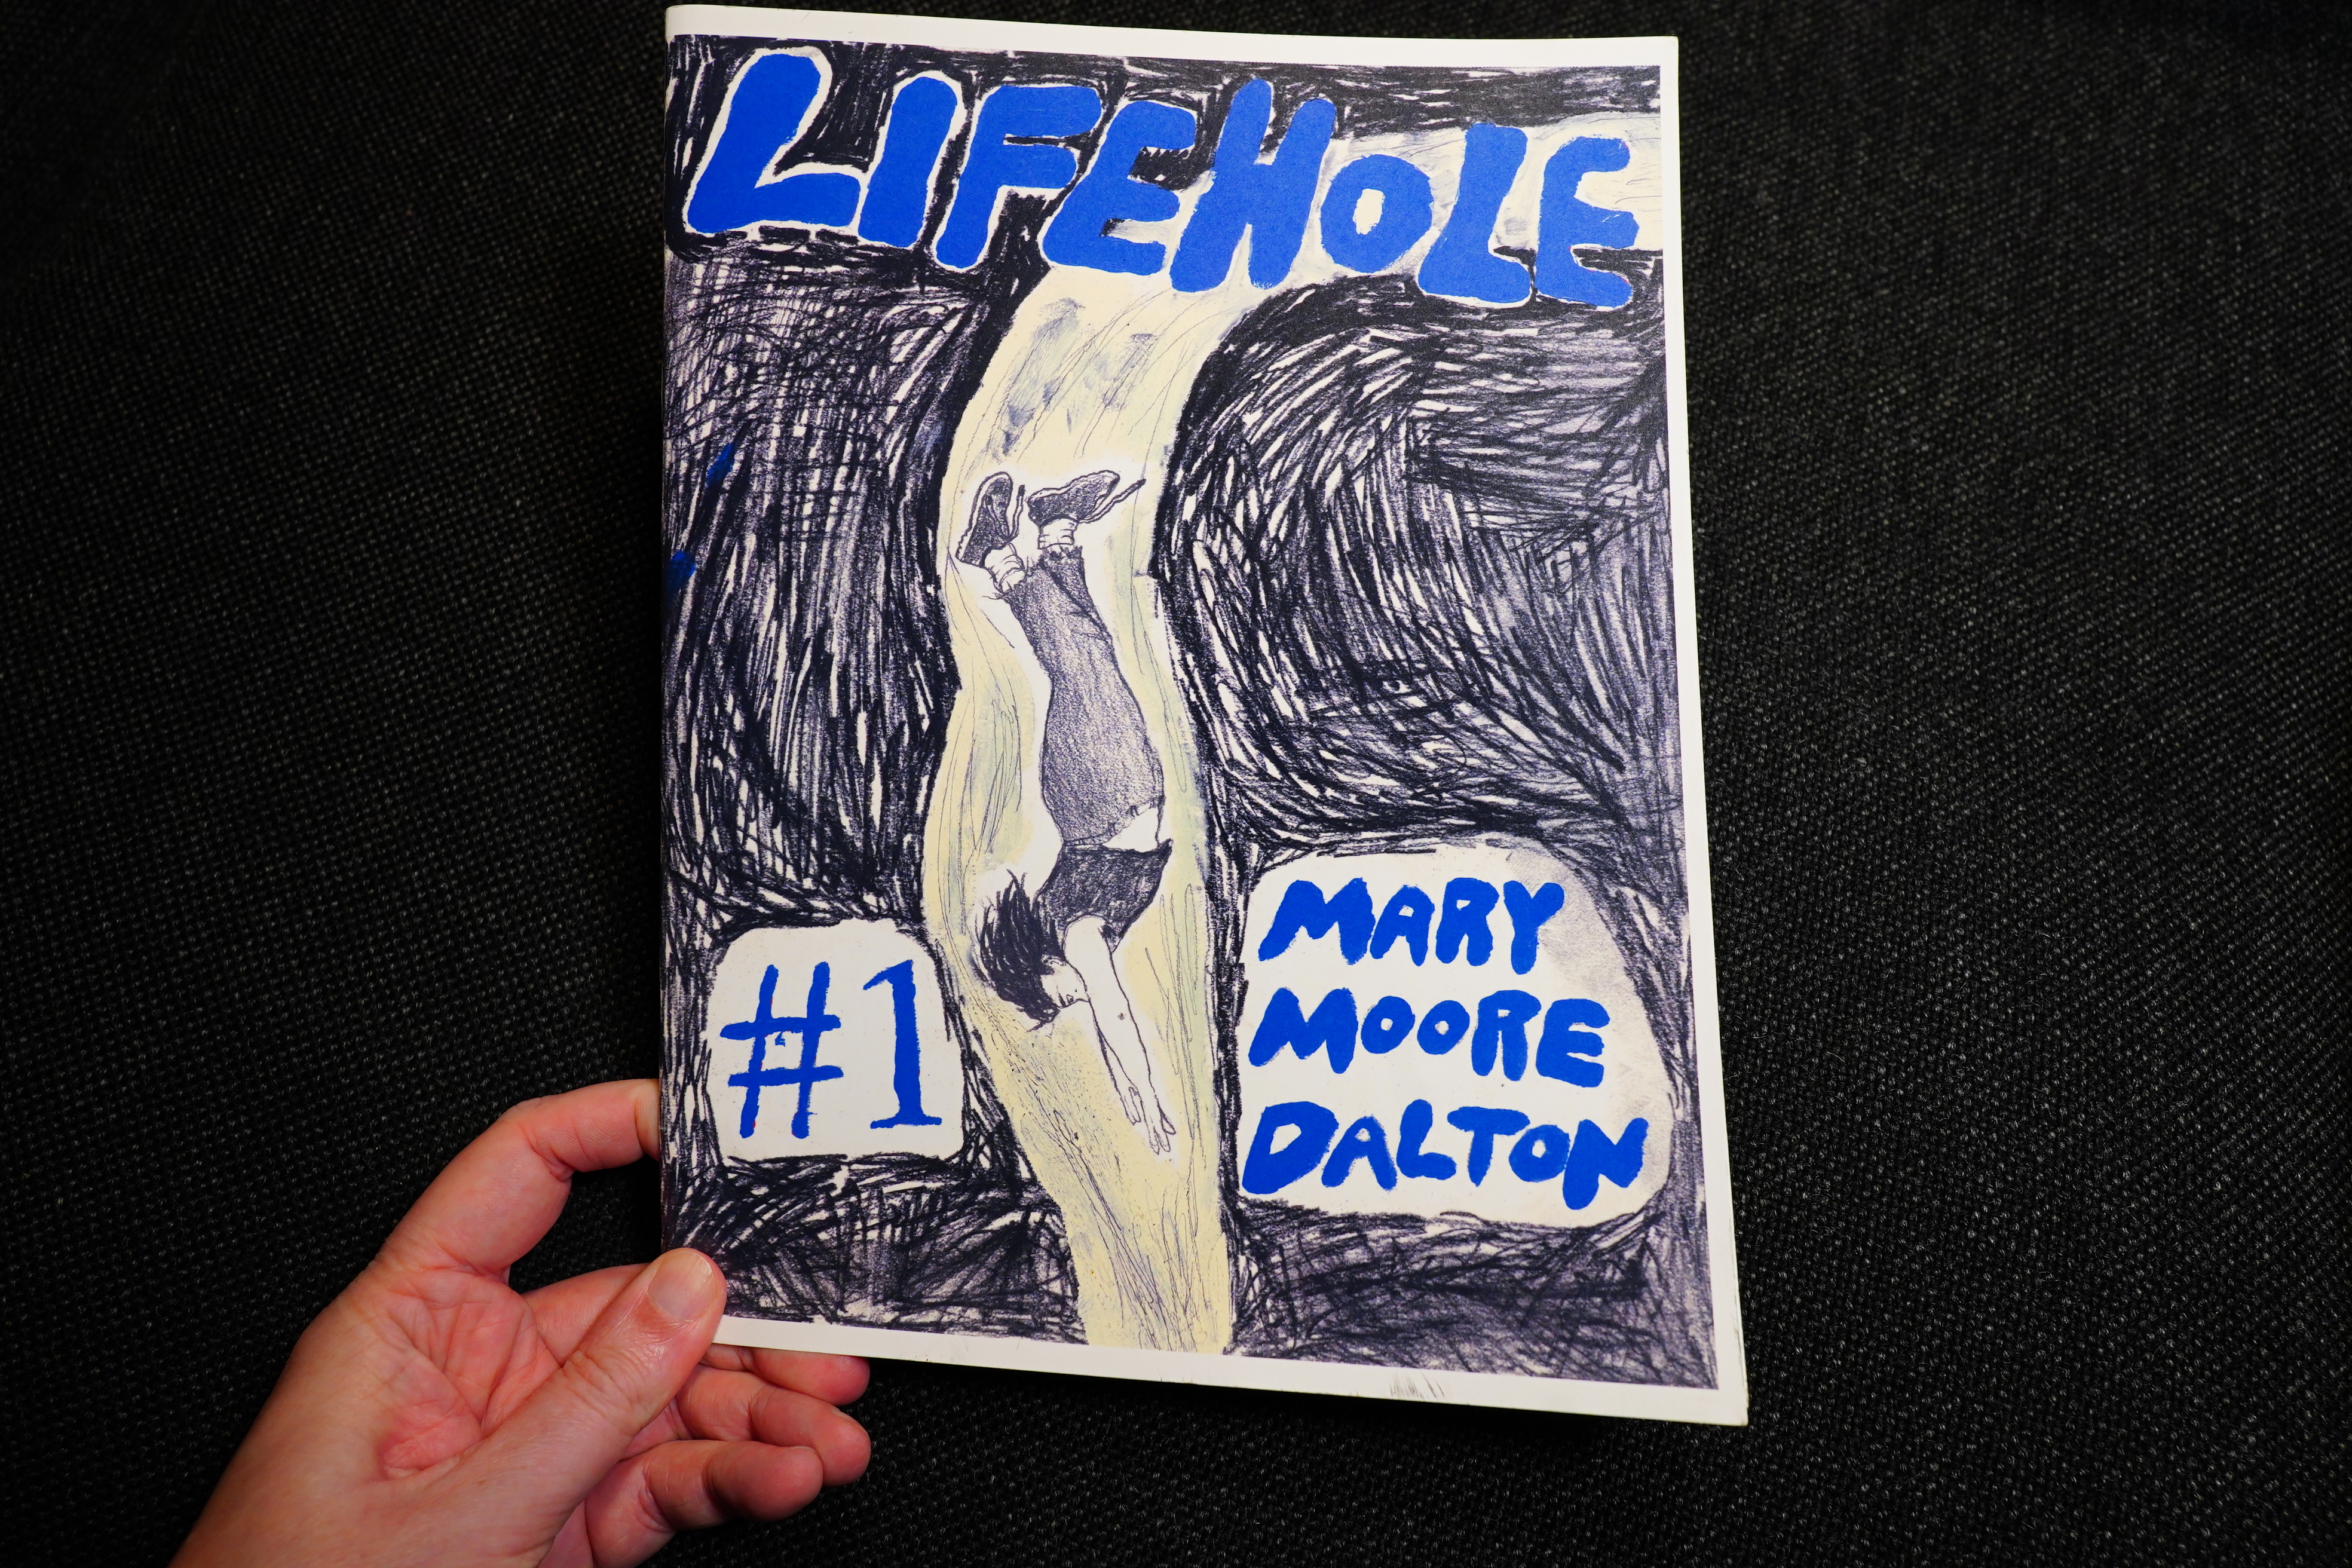 LIFEHOLE
#1
MARY
MOORE
DALTON